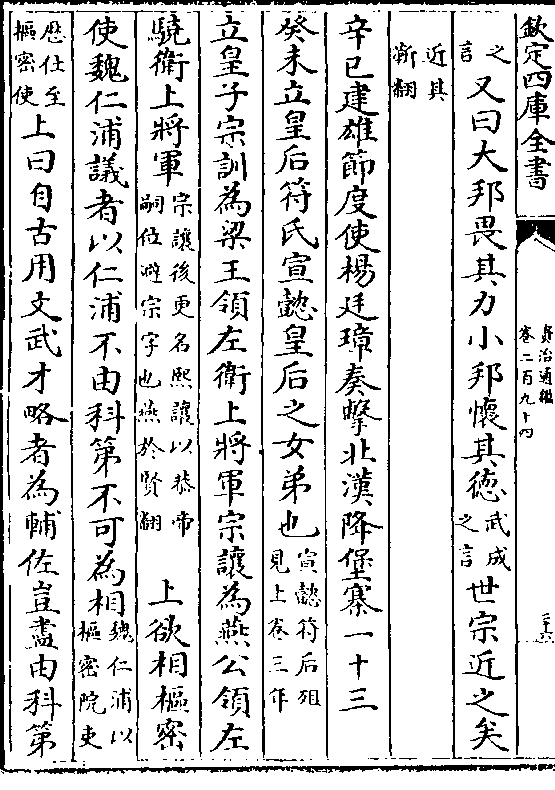 欽定四庫全書
資治通鑑
卷二百九十四
之言又曰大邦畏其力小邦懷其德武成之言世宗近之矣
近其靳翻
辛巳建雄節度使楊廷璋奏擊北漢降堡寨一十三
癸未立皇后符氏宣懿皇后之女弟也宣懿符后殂見上卷三年
立皇子宗訓為梁王領左衛上將軍宗讓為燕公領左
驍衛上將軍宗讓後更名熙讓以恭帝嗣位避宗字也燕於賢翻 上欲相樞密
使魏仁浦議者以仁浦不由科第不可為相魏仁浦以樞密院吏
歷仕至樞密使上曰自古用文武才略者為輔佐豈盡由科第